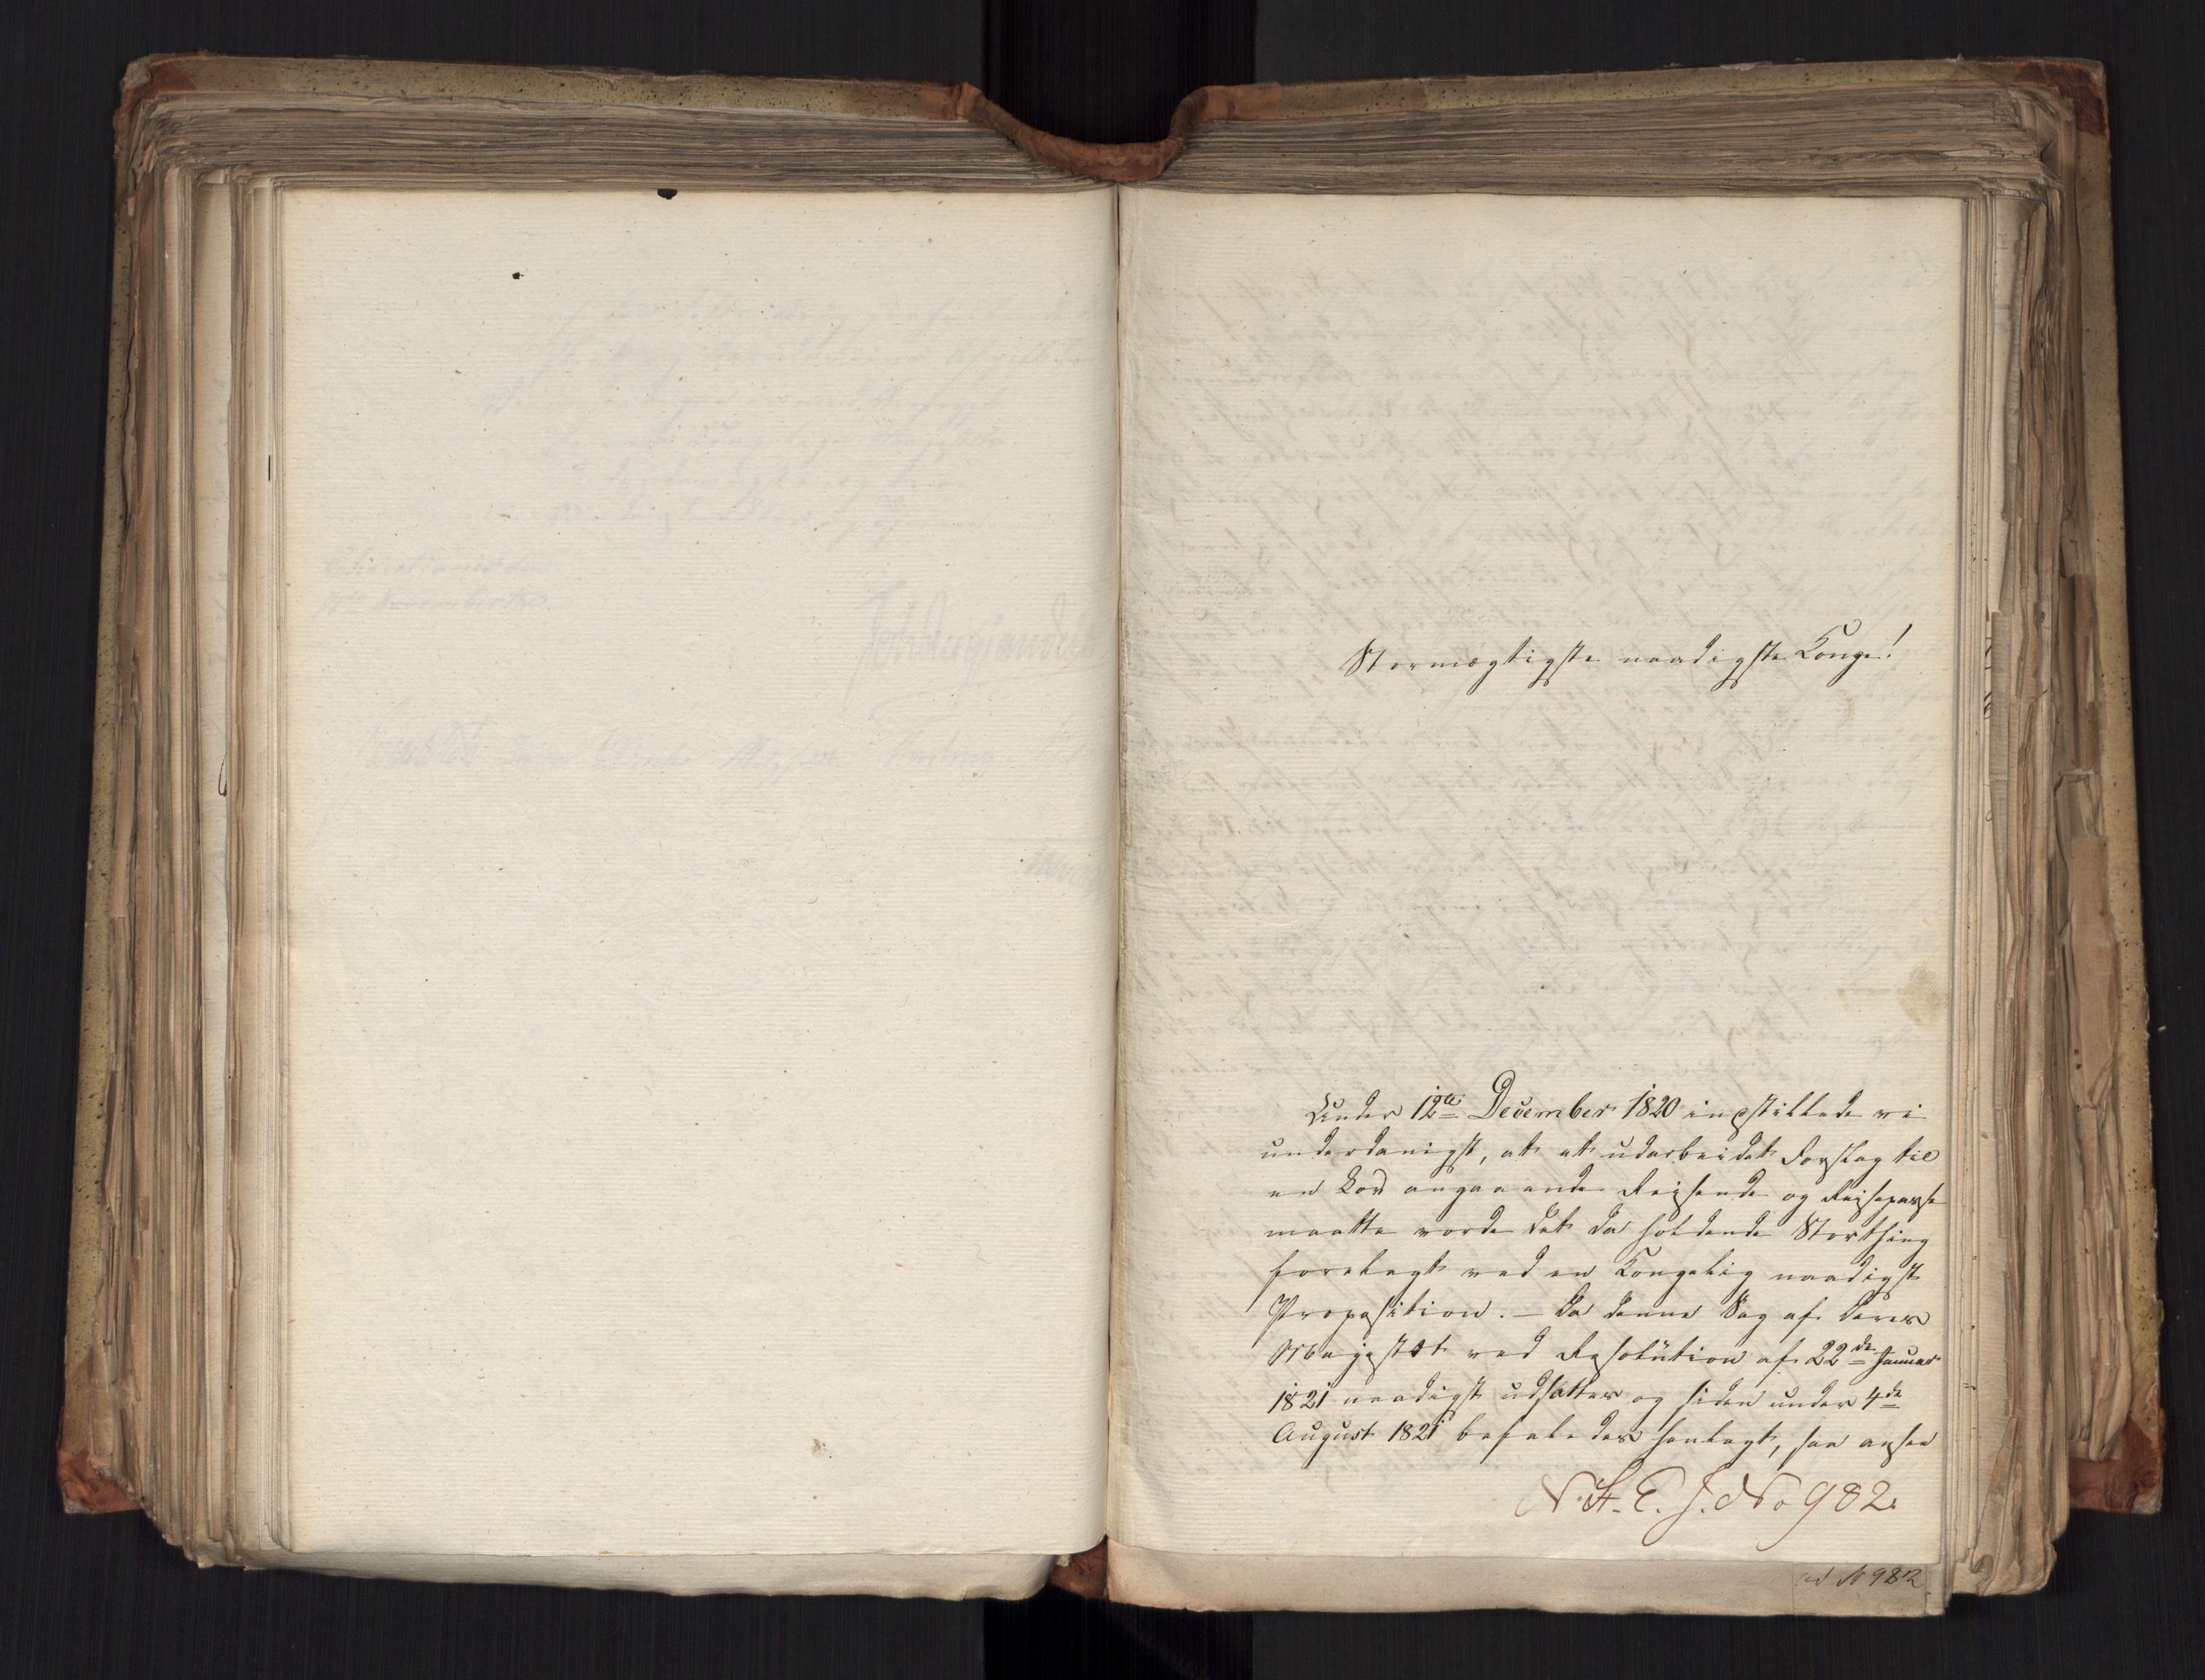 Stormægtigste naadigste Konge!
Under 12te December 1820 indstillede vi
underdanigst, at et udarbeidet Forslag til
en Lov angaaende Reisende og Reisepasse
maatte vorde det da holdende Storthing
forelagt ved en Kongelig naadigst
Proposition. – Da denne Sag af Deres
Majestæt ved Resolution af 22de Januar
1821 naadigst udsattes og siden under 4de
August 1821 befaledes henlagt, saa ansee
N. St. E. J. No 982.
ad N 982